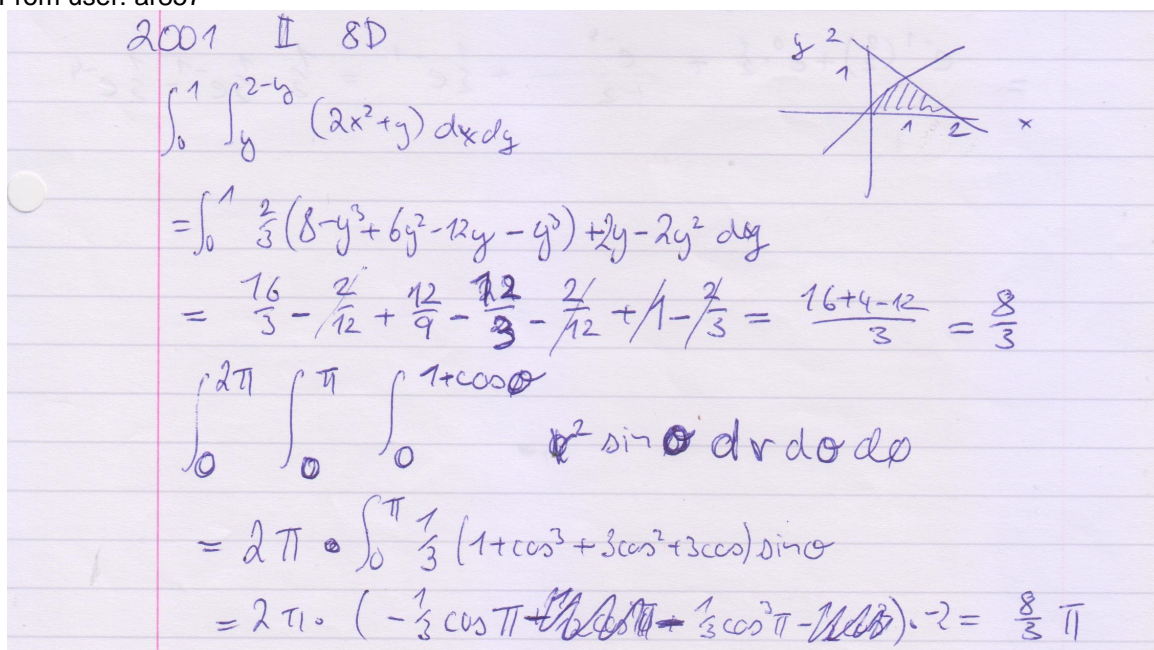 From user: ar857
2001 II 8D
y 2
1
1 2 x
∫₀¹ ∫_y^{2-y} (2x²+y) dxdy
= ∫₀¹ 2/3 (8-y³+6y²-12y-y³) +2y-2y² dy
= 16/3 - 2/12 + 12/9 - 12/3 - 2/12 + 1 - 2/3 = (16+4-12)/3 = 8/3
∫₀^{2π} ∫₀^π ∫₀^{1+cosθ} r² sinθ dr dθ dφ
= 2π · ∫₀^π 1/3 (1+cos³+3cos²+3cos) sinθ
= 2π · (-1/3 cos π - 1/3 cos³π) · 2 = 8/3 π